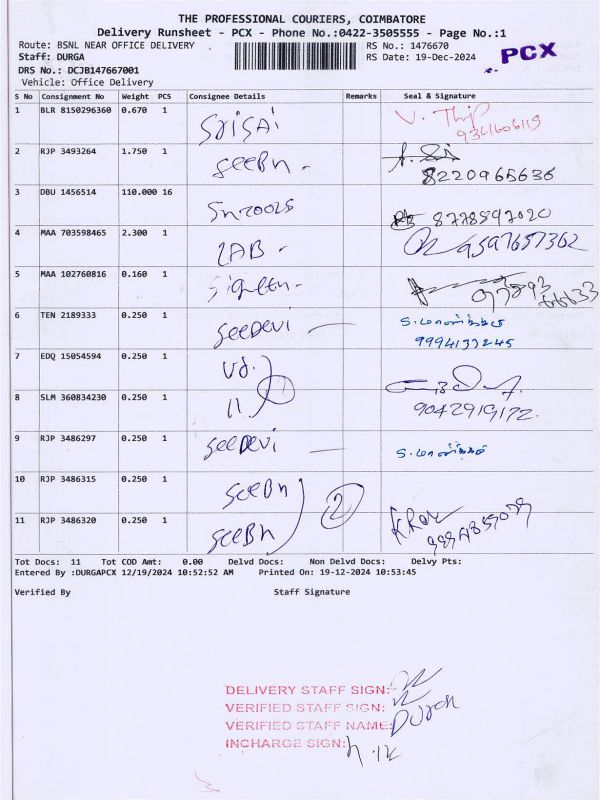 THE PROFESSIONAL COURIERS, COIMBATORE
Delivery Runsheet - PCX - Phone No.:0422-3505555 - Page No.:1
Route: BSNL NEAR OFFICE DELIVERY RS No.: 1476670
Staff: DURGA RS Date: 19-Dec-2024
PCX
DRS No.: DCJB147667001
Vehicle: Office Delivery
S No Consignment No Weight PCS Consignee Details Remarks Seal & Signature
1 BLR 8150296360 0.670 1 Srisai
2 RJP 3493264 1.750 1 seeBh - 8220965636
3 DBU 1456514 110.000 16 8778597020
4 MAA 703598465 2.300 1 LAB - 9597657362
5 MAA 102760816 0.160 1
6 TEN 2189333 0.250 1 seeDevi 9994133245
7 EDQ 15054594 0.250 1 Vd.
8 SLM 360834230 0.250 1 11 9042919172.
9 RJP 3486297 0.250 1 seeDevi
10 RJP 3486315 0.250 1 seeBh 2
11 RJP 3486320 0.250 1 seeBh
Tot Docs: 11 Tot COD Amt: 0.00 Delvd Docs: Non Delvd Docs: Delvy Pts:
Entered By :DURGAPCX 12/19/2024 10:52:52 AM Printed On: 19-12-2024 10:53:45
Verified By Staff Signature
DELIVERY STAFF SIGN:
VERIFIED STAFF SIGN:
VERIFIED STAFF NAME:
INCHARGE SIGN: